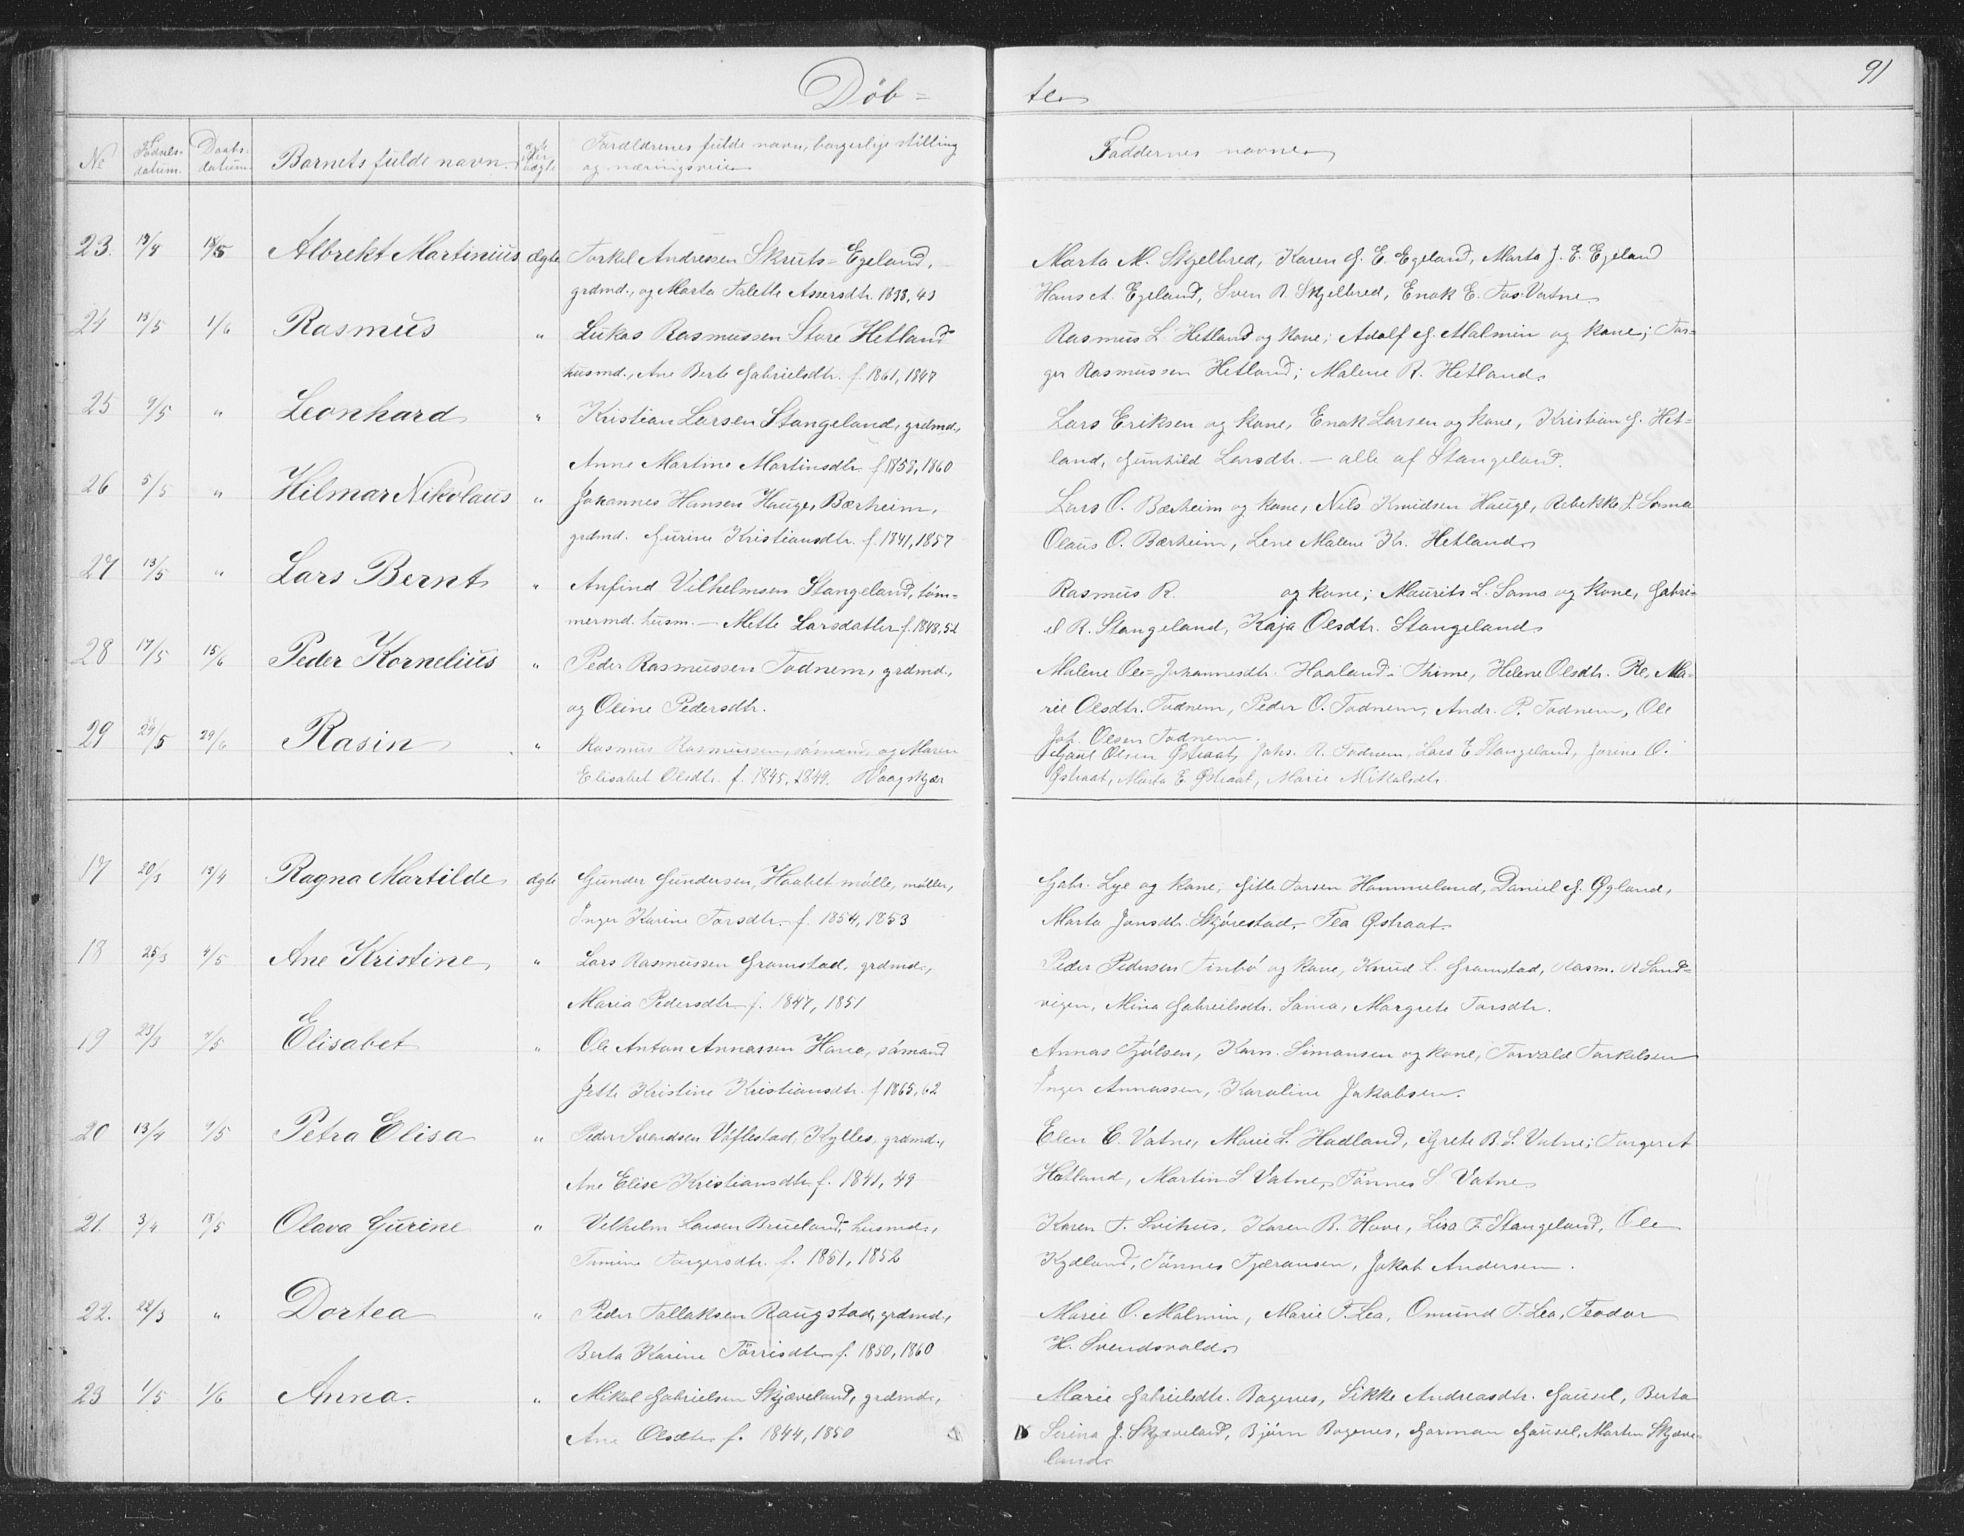 Döb- tes 91
No Fødselsdatum. Daabsdatum. Barnets fulde navn. ægte eller uægte Forældrenes fulde navn, borgerlige stilling og næringsvei Faddernes navne
23. 18/5 Albrekt Martinius ægte Torkel Andressen Skruts-Egeland, Marta M. Skjelbred, Karen G. E. Egeland, Marta J. E. Egeland
grdmd., og Marta Talette Assersdtr. 1838, 43 Hans A. Egeland, Sven R. Skjelbred, Enok E. Fos-Vatne
24 13/5 1/6 Rasmus " Lukas Rasmussen Store Hetland Rasmus L. Hetland og kone; Adolf G. Malmin og kone; Tor-
husmd., Ane Berte Gabrielsdtr. f. 1861, 1847 ger Rasmussen Hetland; Malene R. Hetland
25 9/5 " Leonhard " Kristian Larsen Stangeland, grdmd., Lars Eriksen og kone, Enok Larsen og kone, Kristian G. Het-
Anne Martine Martinsdtr. f. 1858, 1860 land, Gunhild Larsdtr. — alle af Stangeland.
26 5/5 " Hilmar Nikolaus " Johannes Hansen Hauge, Bærheim, Lars O. Bærheim og kone, Nils Knudsen Hauge, Rebekka L. Soma
grdmd. Gurine Kristiansdtr. f. 1841, 1857 Olaus O. Bærheim, Lene Malene Kr. Hetland
27 13/5 " Lars Bernt " Anfind Vilhelmsen Stangeland, tøm- Rasmus R. og kone; Maurits L. Soma og kone, Gabri-
mermd. husm. — Mette Larsdatter f. 1848, 52 el R. Stangeland, Kaja Olsdtr. Stangeland
28 17/5 15/6 Peder Kornelius " Peder Rasmussen Todnem, grdmd., Malene Ole-Johannesdtr. Haaland-Thime, Helene Olsdtr. Re, Ma-
og Oline Pedersdtr. rie Olsdtr. Todnem, Peder O. Todnem, Andr. P. Todnem, Ole
Joh. Olsen Todnem.
29 29/6 Rasin " Rasmus Rasmussen, sømand, og Maren Olsen Østraat, Johs. R. Todnem, Lars E Stangeland, Jorine O.
Elisabet Olsdtr. f. 1845, 1849. Vaagskjær Østraat, Marta E. Østraat, Marie Mikkalsdtr.
17 20/3 13/4 Ragna Martilde ægte Gunder Gundersen, Haabet mølle, møller, Gabr. Lye og kone, Gitte Torsen Hommeland, Daniel G. Øgland,
Inger Karine Torsdtr. f. 1854, 1853 Marta Jonsdtr. Skjørestad, Tea Østraat
18 25/3 4/5 Ane Kristine " Lars Rasmussen Gramstad, grdmd., Peder Pedersen Tinbø og kone, Knud L. Gramstad, Rasm. R Sand-
Maria Pedersdtr f. 1847, 1851 vigen, Mina Gabrielsdtr. Soma, Margrete Torsdtr.
19 23/3 4/5 Elisabet " Ole Anton Annassen Hana, sømand Annas Tjølsen, Korn. Simonsen og kone, Torvald Torkelsen
Jette Kristine Kristiansdtr. f 1865, 62 Inger Annassen, Karoline Jakobsen.
20 13/4 4/5 Petra Elisa " Peder Svendsen Kylles, grdmd., Elen E. Vatne, Marie L. Hadland, Grete B. S. Vatne; Torger A
Ane Elise Kristiansdtr f. 1841, 49 Hetland, Martin S Vatne, Tønnes S Vatne
21. 3/4 18/5 Olava Gurine " Velhelm Larsen Brueland, husmd., Karen T. Svihus, Karen B. Hove, Lisa T. Stangeland, Ole
Torgersdtr. f. 1851, 1852 Kydland, Tønnes Tjæransen, Jakob Andersen.
22. 22/3 " Dortea " Peder Tollaksen Raugstad, grdmd., Marie O. Malmin, Marie T. Lea, Omund T. Lea, Teodor
Berta Karine Tørrisdtr f. 1850, 1860 H. Svendsvold
23 1/5 1/6 Anna. " Mikal Gabrielsen Skjæveland, grdmd., Marie Gabrielsdtr. Bogenes, Sikke Andreasdtr. Gausel, Berta
Ane Olsdtr f. 1844, 1850 Serina J. Skjæveland, Bjørn Bogenes, Gorman Gausel, Morten Skjæve-
land